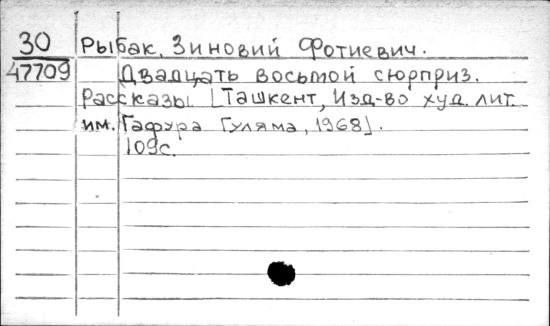 30 Рыбак, Зиновий Фотиевич.
47709 Двадцать восьмой сюрприз.
Рассказы [Ташкент, Изд-во худ. лит.
им. Гафура Гуляма, 1968].
109с.